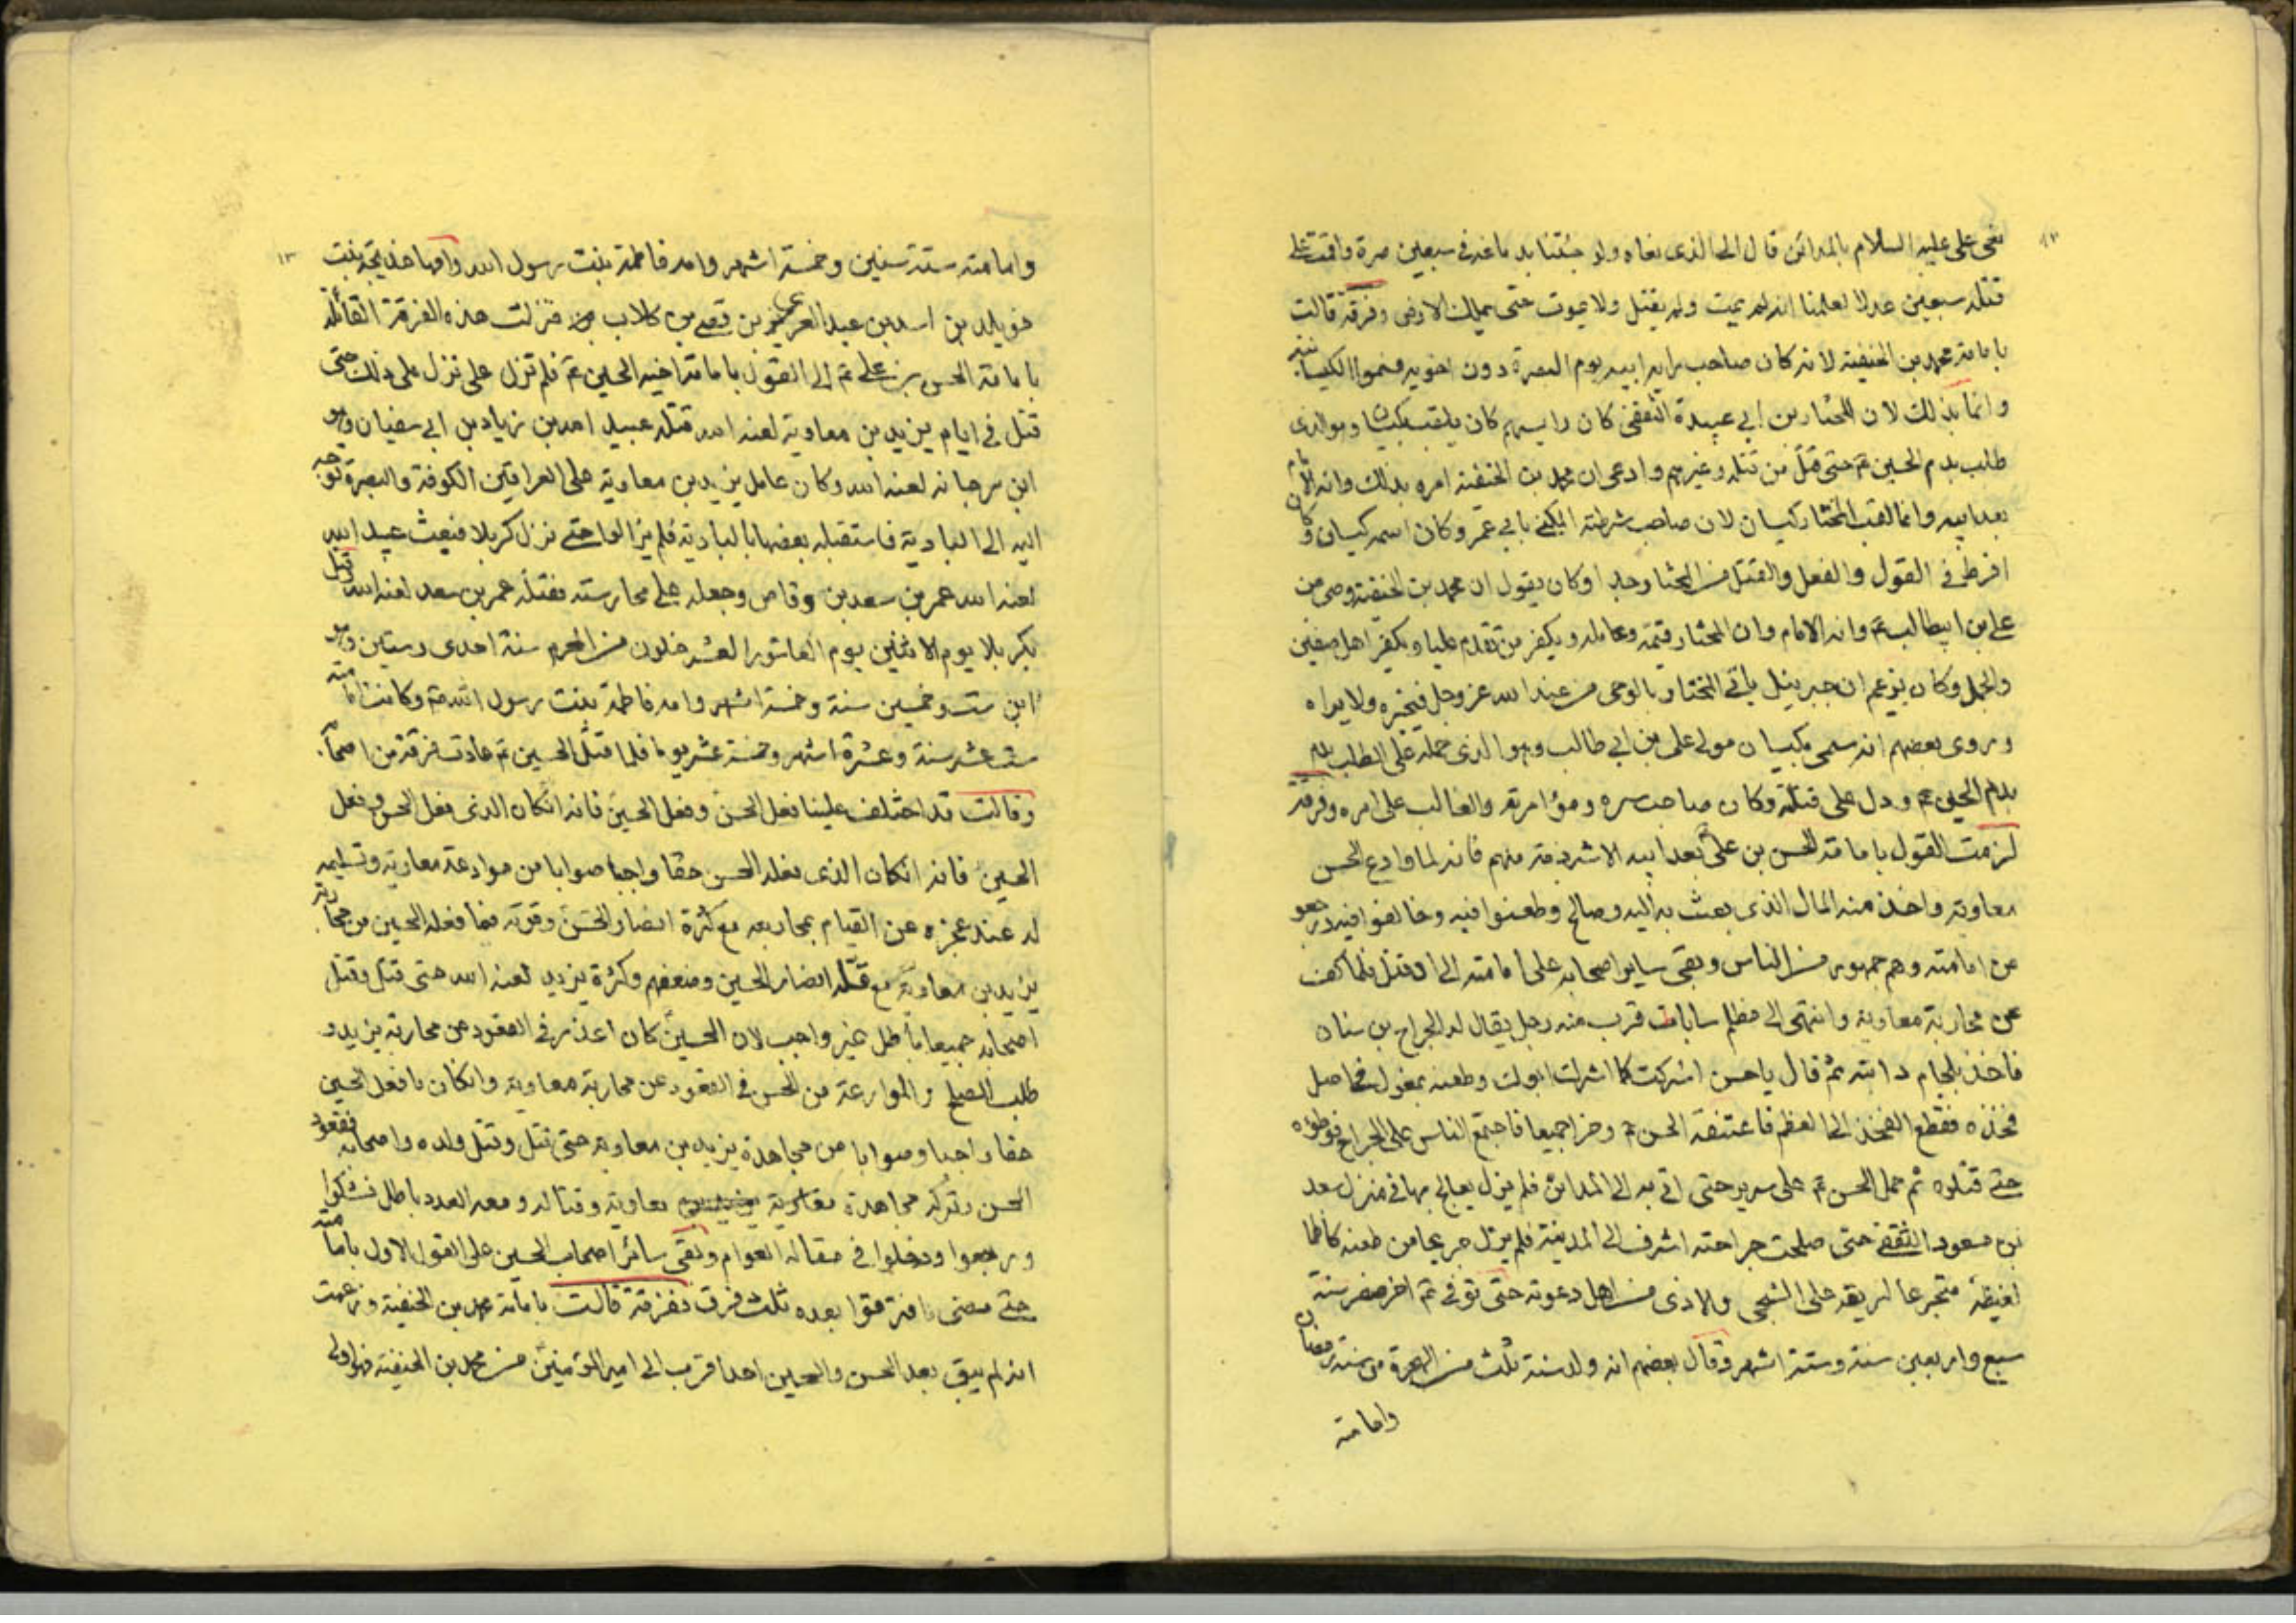 ١٢
نعى على عليه السلام بالمدائن قال الى الذى نعاه ولو جئتنا بدماغه فى سبعين صرة واقمت على
قتله سبعين عدلا لعلمنا انه لم يمت ولم يقتل ولا يموت حتى يملك الارض وفرقة قالت
بامامة محمد بن الحنفية لانه كان صاحب راية ابيه يوم البصرة دون اخويه فسموا الكيسانية
وانما بذلك لان المختار بن ابي عبيدة الثقفى كان رايسهم كان يلقب كيسان وهو الذى
طلب بدم الحسين ع حتى قتل من قتله وغيرهم وادعى ان محمد بن الحنفية امره بذلك وانه الامام
بعد ابيه وانما لقب المختار كيسان لان صاحب شرطته المكنى بابي عمر وكان اسمه كيسان وكان
افرط فى القول والفعل والقتل من المختار وجدا وكان يقول ان محمد بن الحنفية وصى من
على بن ابيطالب ع وانه الامام وان المختار قيمه وعامله ويكفر من تقدم عليا ويكفر اهل صفين
والجمل وكان يزعم ان جبرئيل ياتى المختار بالوحى من عند الله عز وجل فيخبره ولا يراه
وروى بعضهم انه سمى بكيسان مولى على بن ابي طالب وهو الذى حمله على الطلب
بدم الحسين ع ودل على قتلته وكان صاحب سره ومؤامرته والغالب على امره وفرقة
لزمت القول بامامة الحسن بن على بعد ابيه الا شرذمة منهم فانه لما وادع الحسن
معاوية واخذ منه المال الذى بعث به اليه وصالح وطعنوا فيه وخالفوا فيه ورجعو
عن امامته وهم جمهور من الناس وبقى ساير اصحابه على امامته الى ان قتل فلما كف
عن محاربة معاوية وانتهى الى مظلم ساباط قرب منه رجل يقال له الجراح بن سنان
فاخذ بلجام دابته ثم قال يا حسن اشركت كما اشرك ابوك وطعنه بمغول فى اصل
فخذه فقطع الفخذ الى العظم فاعتنقه الحسن ع وخرا جميعا فاجتمع الناس على الجراح فوطؤه
حتى قتلوه ثم حمل الحسن ع على سرير حتى اتى به الى المدائن فلم يزل يعالج بها فى منزل سعد
بن مسعود الثقفى حتى صلحت جراحته اشرف الى المدينة فلم يزل جريحا من طعنه كاظما
لغيظه متجرعا لريقه على الشجى والاذى من اهل دعوته حتى توفى ع اخر صفر سنة
سبع واربعين سنة وستة اشهر وقال بعضهم انه ولد سنة ثلث من الهجرة من شهر رمضان
وامامته
١٣
وامامته ستة سنين وخمسة اشهر وامه فاطمة بنت رسول الله وامها خديجة بنت
خويلد بن اسد بن عبد العزى بن قصى بن كلاب فنزلت هذه الفرقة القائلة
بامامة الحسن بن على ع الى القول بامامة اخيه الحسين ع فلم تزل على ذلك حتى
قتل فى ايام يزيد بن معاوية لعنه الله قتله عبيد الله بن زياد بن ابي سفيان وهو
ابن مرجانه لعنه الله وكان عامل يزيد بن معاوية على العراقين الكوفة والبصرة توجه
اليه الى البادية فاستقبله بعضها بالبادية فلم يزالوا حتى نزل كربلا فبعث عبيد الله
لعنه الله عمر بن سعد بن وقاص وجعله على محاربته فقتله عمر بن سعد لعنه الله قتل
بكربلا يوم الاثنين يوم العاشورا لعشر خلون من المحرم سنة احدى وستين وهو
ابن ست وخمسين سنة وخمسة اشهر وامه فاطمة بنت رسول الله وكانت امامته
ست عشر سنة وعشرة اشهر وخمسة عشر يوما فلما قتل الحسين ع حادت فرقة من اصحابه
وقالت قد اختلف علينا فعل الحسن وفعل الحسين فانه انكان الذى فعل الحسن وفعل
الحسين فانه انكان الذى فعله الحسن حقا واجبا صوابا من موادعة معاوية وتسليمه
له عند عجزه عن القيام بمحاربته مع كثرة انصار الحسن وقوته فما فعله الحسين من محاربة
يزيد بن معاوية مع قلة انصار الحسين وضعفهم وكثرة يزيد لعنه الله حتى قتل وقتل
اصحابه جميعا باطل غير واجب لان الحسين كان اعذر فى القعود من محاربة يزيد و
طلب الصلح والموادعة من الحسن فى القعود عن محاربة معاوية وانكان ما فعل الحسين
حقا واجبا وصوابا من مجاهدة يزيد بن معاوية حتى قتل وقتل ولده واصحابه فقعود
الحسن وتركه مجاهدة معاوية وقتاله ومعه العدد باطل فشكوا
ورجعوا ودخلوا فى مقالة العوام وبقى سائر اصحاب الحسين على القول الاول بامامته
حتى مضى فافترقوا بعده ثلث فرق ففرقة قالت بامامة محمد بن الحنفية وزعمت
انه لم يبق بعد الحسن والحسين احد اقرب الى امير المؤمنين من محمد بن الحنفية فهو اولى